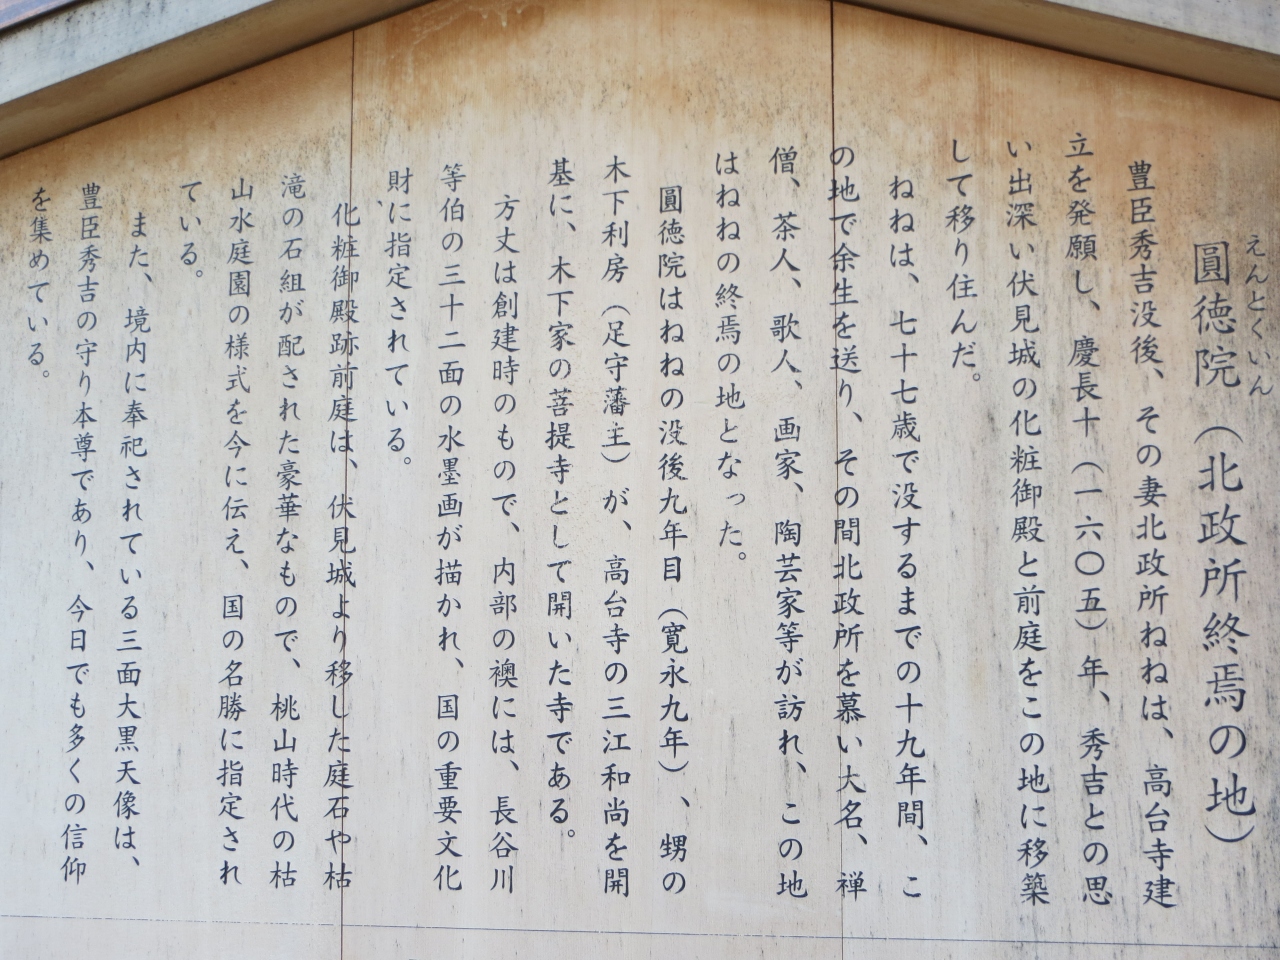 えんとくいん
圓徳院（北政所終焉の地）
豊臣秀吉没後、その妻北政所ねねは、高台寺建
立を発願し、慶長十（一六〇五）年、秀吉との思
い出深い伏見城の化粧御殿と前庭をこの地に移築
して移り住んだ。
ねねは、七十七歳で没するまでの十九年間、こ
の地で余生を送り、その間北政所を慕い大名、禅
僧、茶人、歌人、画家、陶芸家等が訪れ、この地
はねねの終焉の地となった。
圓徳院はねねの没後九年目（寛永九年）、甥の
木下利房（足守藩主）が、高台寺の三江和尚を開
基に、木下家の菩提寺として開いた寺である。
方丈は創建時のもので、内部の襖には、長谷川
等伯の三十二面の水墨画が描かれ、国の重要文化
財に指定されている。
化粧御殿跡前庭は、伏見城より移した庭石や枯
滝の石組が配された豪華なもので、桃山時代の枯
山水庭園の様式を今に伝え、国の名勝に指定され
ている。
また、境内に奉祀されている三面大黒天像は、
豊臣秀吉の守り本尊であり、今日でも多くの信仰
を集めている。